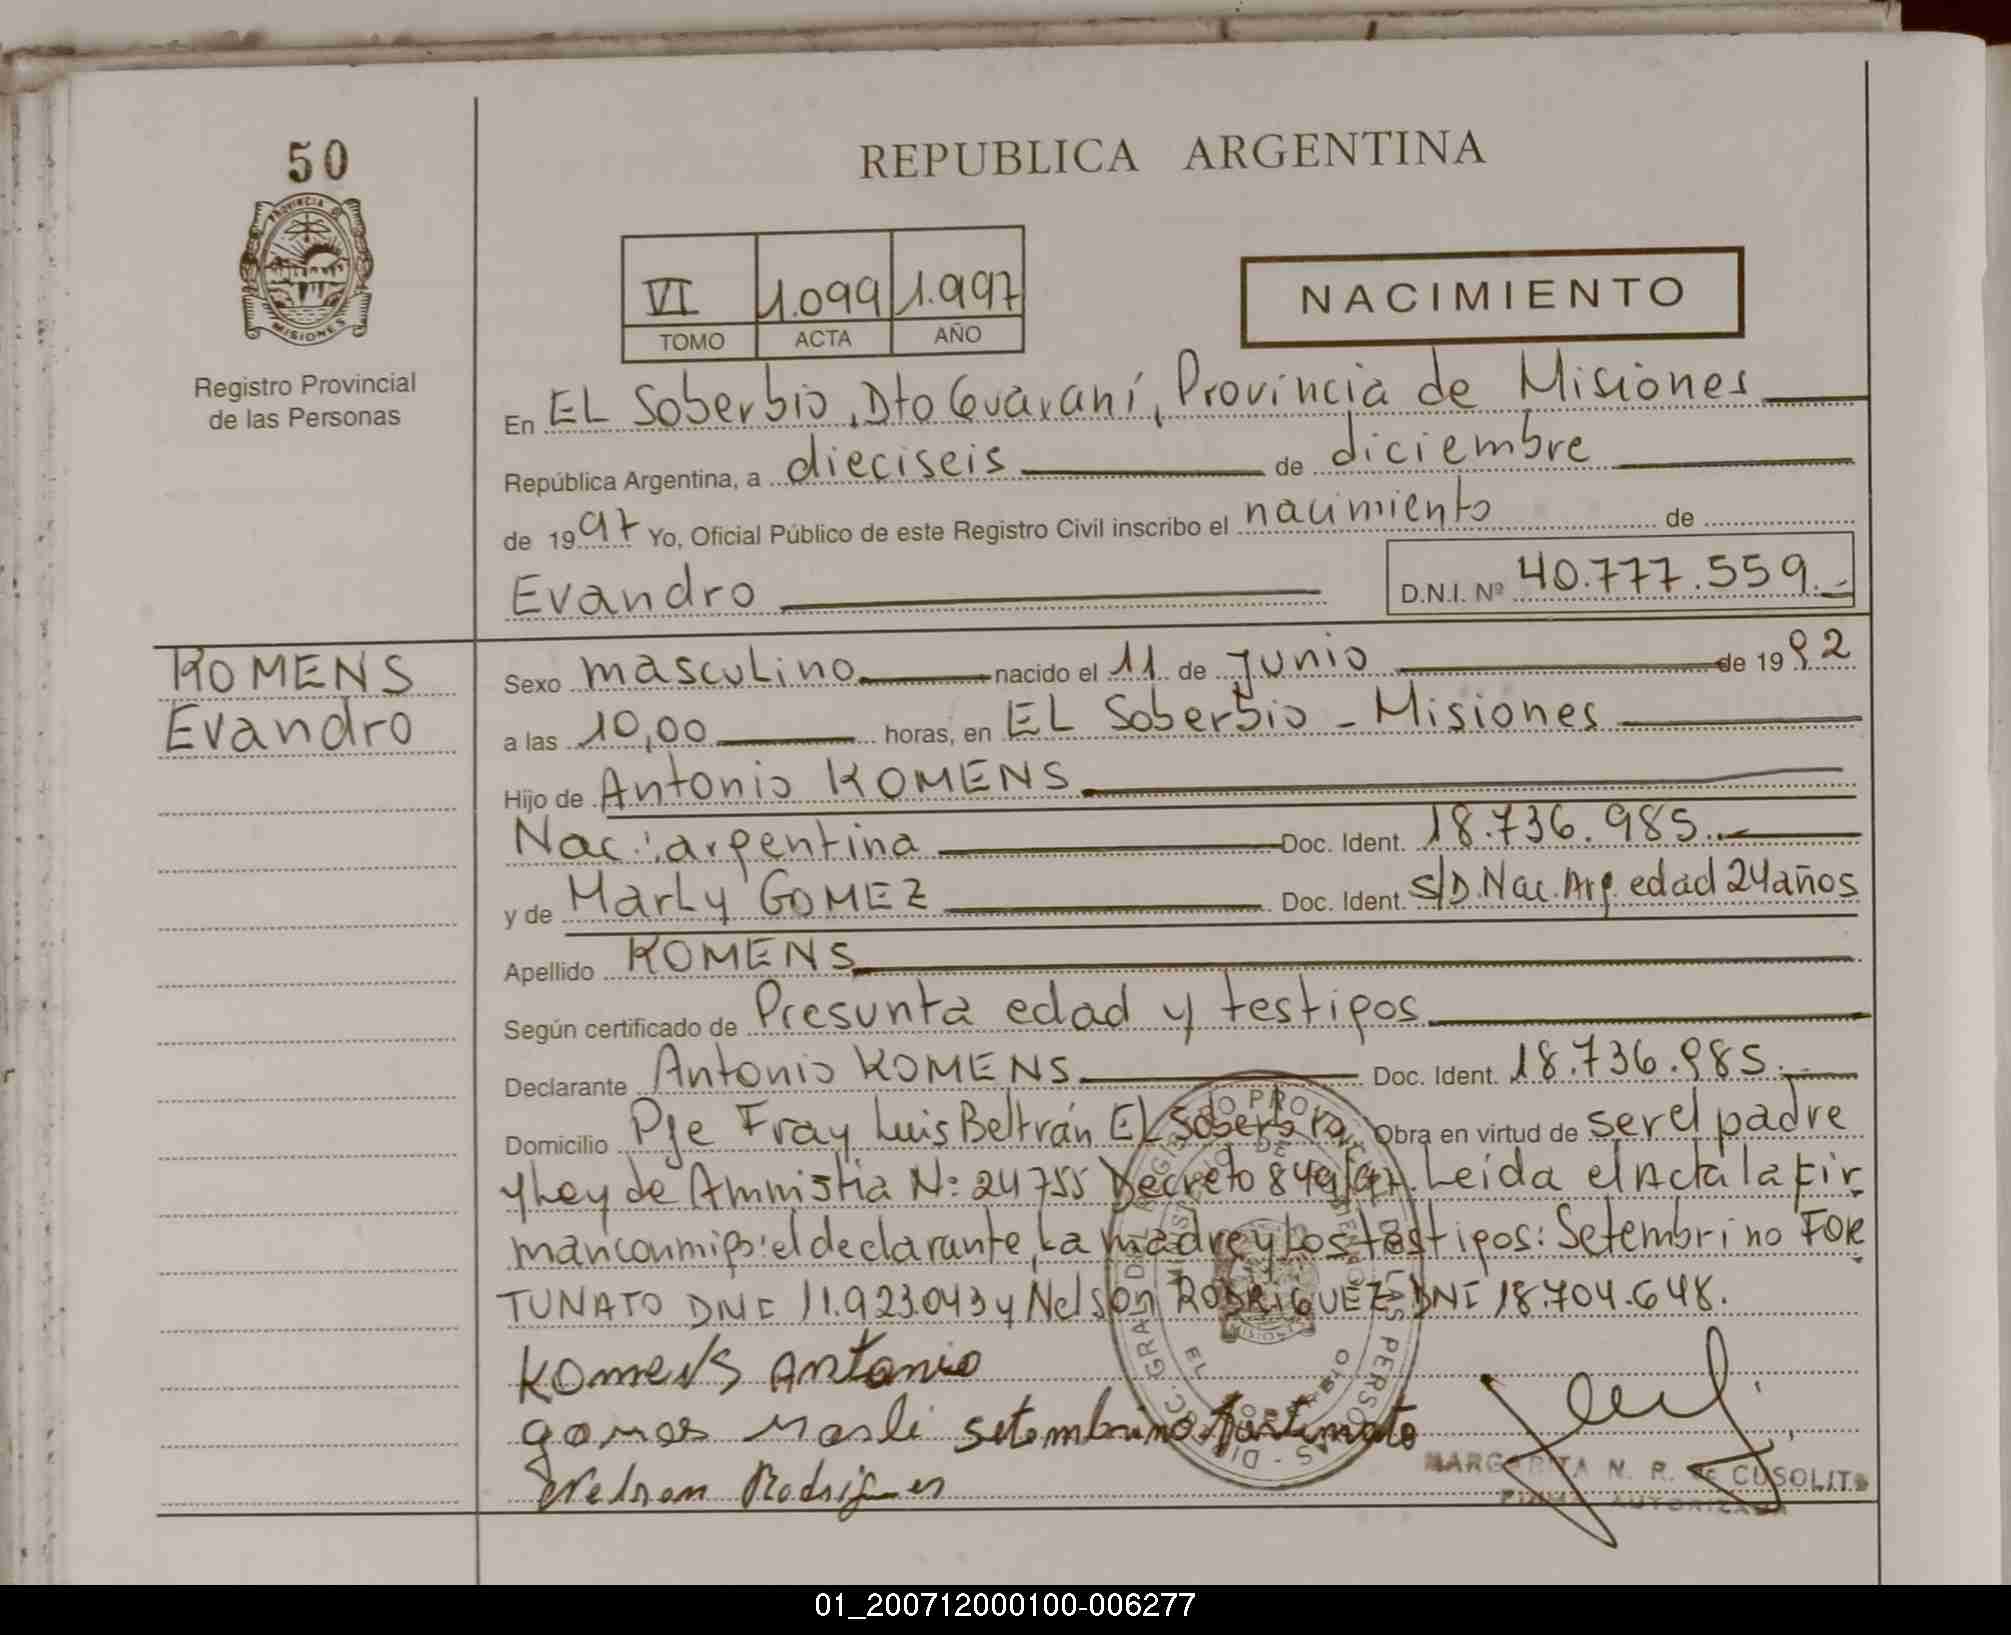 50
REPUBLICA ARGENTINA
PROVINCIA DE
MISIONES
Registro Provincial
de las Personas
VI 1.099 1.997
TOMO ACTA AÑO
NACIMIENTO
En EL Soberbio, Dto Guaraní, Provincia de Misiones
República Argentina, a dieciseis de diciembre
de 1997 Yo, Oficial Público de este Registro Civil inscribo el nacimiento de
Evandro D.N.I. Nº 40.777.559.-
KOMENS
Evandro
Sexo masculino nacido el 11 de junio de 1992
a las 10,00 horas, en EL Soberbio - Misiones
Hijo de Antonio KOMENS
Nac.: argentina Doc. Ident. 18.736.985.-
y de Marly GOMEZ Doc. Ident. S/D. Nac. Arg. edad 24 años
Apellido KOMENS
Según certificado de Presunta edad y testigos
Declarante Antonio KOMENS Doc. Ident. 18.736.985.-
Domicilio Pje Fray Luis Beltrán EL Soberbio Obra en virtud de ser el padre
y Ley de Amnistia N: 24755 Decreto 849/97. Leída el Acta la fir
man conmigo: el declarante, La madre y Los testigos: Setembrino FOR
TUNATO DNI 11.923.043 y Nelson RODRIGUEZ DNI 18.704.648.
Komens Antonio
gomes Marli Setembrino Fortunato
Nelson Rodrigues
MARGARITA N. R. de CUSOLITO
FIRMA AUTORIZADA
01_200712000100-006277